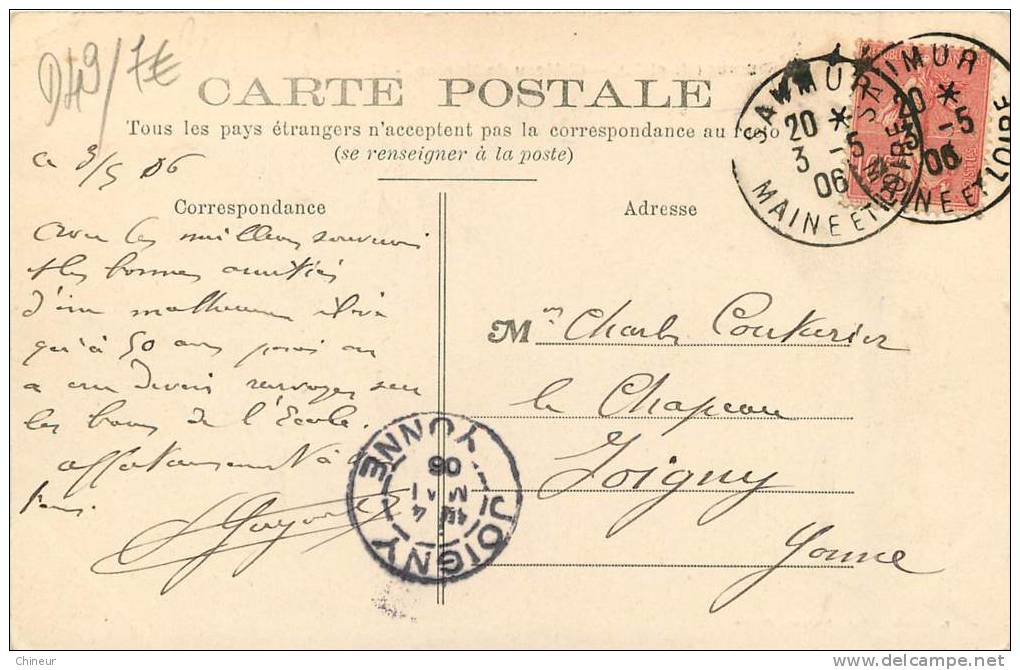 D49/7€
CARTE POSTALE
Tous les pays étrangers n'acceptent pas la correspondance au
(se renseigner à la poste)
ce 3/5 06
Correspondance
Adresse
SAUMUR
20 *
3 -5
06
MAINE ET LOIRE
SAUMUR
20 *
3 -5
06
MAINE ET LOIRE
avec les meilleurs souvenirs
& les bonnes amitiés
d'un malheureux
qu'à 50 ans
a cru devoir renvoyer sur
les bancs de l'École.
affectueusement à
Mon Charles Couturier
le Chapeau
Joigny
Yonne
JOIGNY
4
MAI
06
YONNE
Chineur
delcampe.net